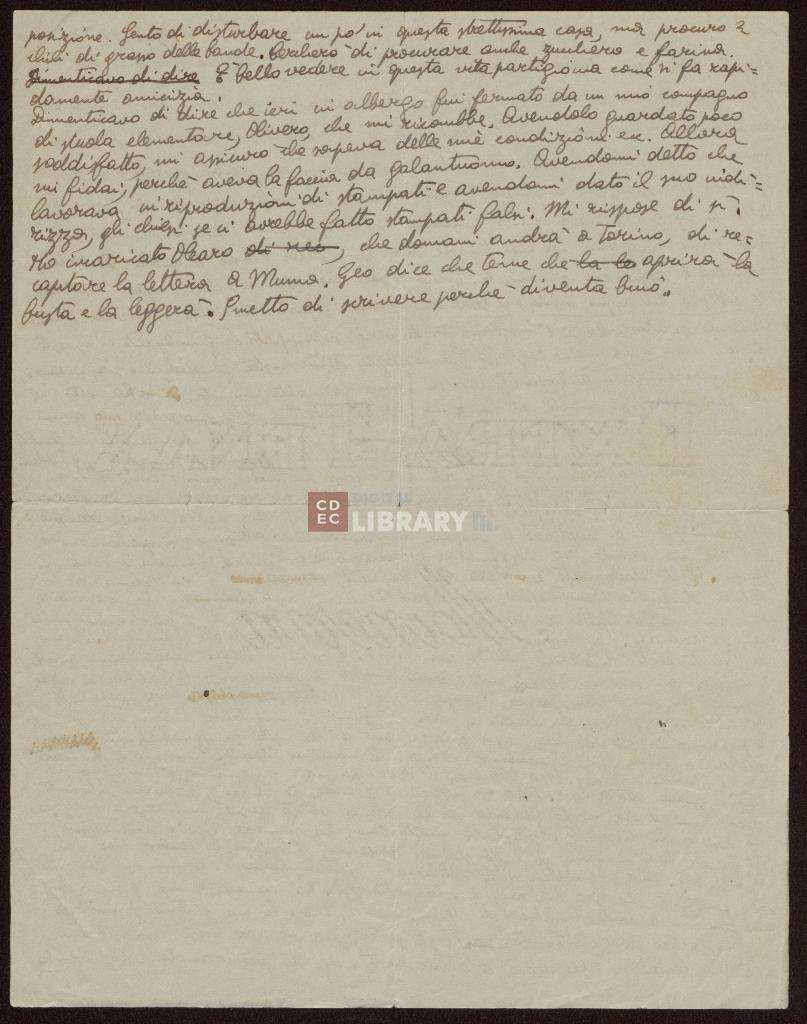 posizione. Sento di disturbare un po' in questa strettissima casa, ma procuro 2
chili di grasso delle bande. Cercherò di procurare anche zucchero e farina.
Dimenticavo di dire È bello vedere in questa vita partigiana come si fa rapi=
damente amicizia.
Dimenticavo di dire che ieri in albergo fui fermato da un mio compagno
di scuola elementare, Olivero, che mi riconobbe. Avendolo guardato poco
soddisfatto, mi assicurò che sapeva delle mie condizioni ecc. Allora
mi fidai, perchè aveva la faccia da galantuomo. Avendomi detto che
lavorava in riproduzioni di stampati e avendomi dato il suo indi=
rizzo, gli chiesi se ci avrebbe fatto stampati falsi. Mi rispose di sì.
Ho incaricato di rec, che domani andrà a Torino, di re=
capitare la lettera a Mumo. Geo dice che teme che la le aprirà la
busta e la leggerà. Smetto di scrivere perchè diventa buio.
CD
EC
DIGITAL
LIBRARY